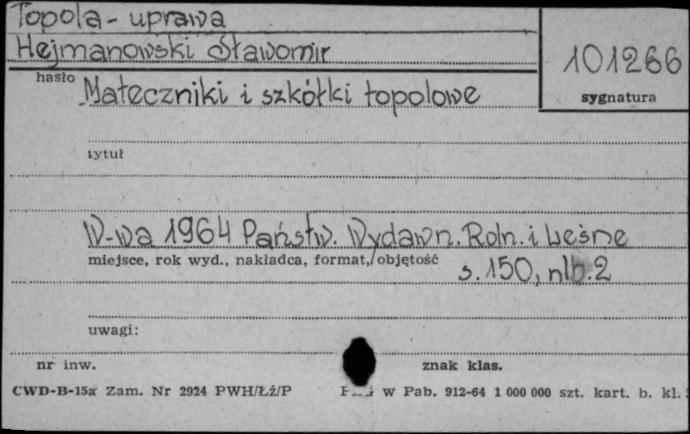 Topola - uprawa
Hejmanowski Sławomir
101266
hasło
sygnatura
Mateczniki i szkółki topolowe
tytuł
W-wa 1964 Państw. Wydawn. Roln. i Leśne
miejsce, rok wyd., nakładca, format, objętość
s. 150, nlb. 2
uwagi:
nr inw.
znak klas.
CWD-B-15a Zam. Nr 2924 PWH/Łź/P
w Pab. 912-64 1 000 000 szt. kart. b. kl.